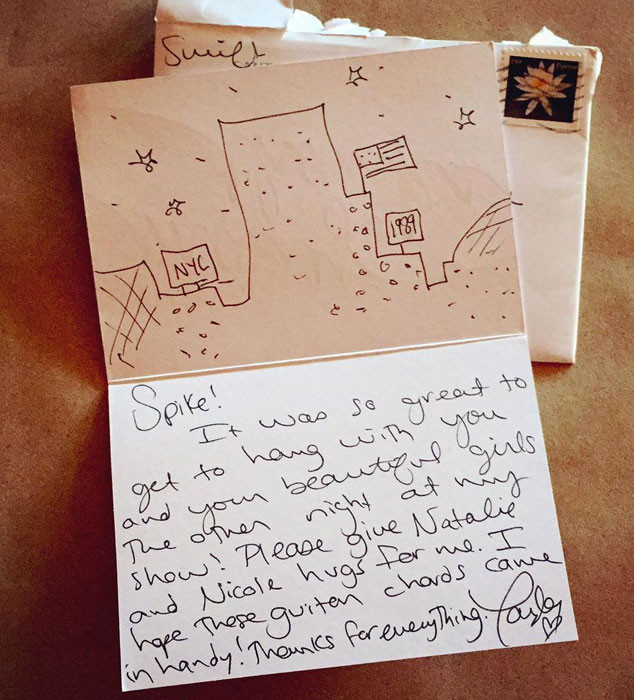 Swift
NYC
1989
Spike!
It was so great to
get to hang with you
and your beautiful girls
the other night at my
show! Please give Natalie
and Nicole hugs for me. I
hope these guitar chords came
in handy! Thanks for everything! Taylor